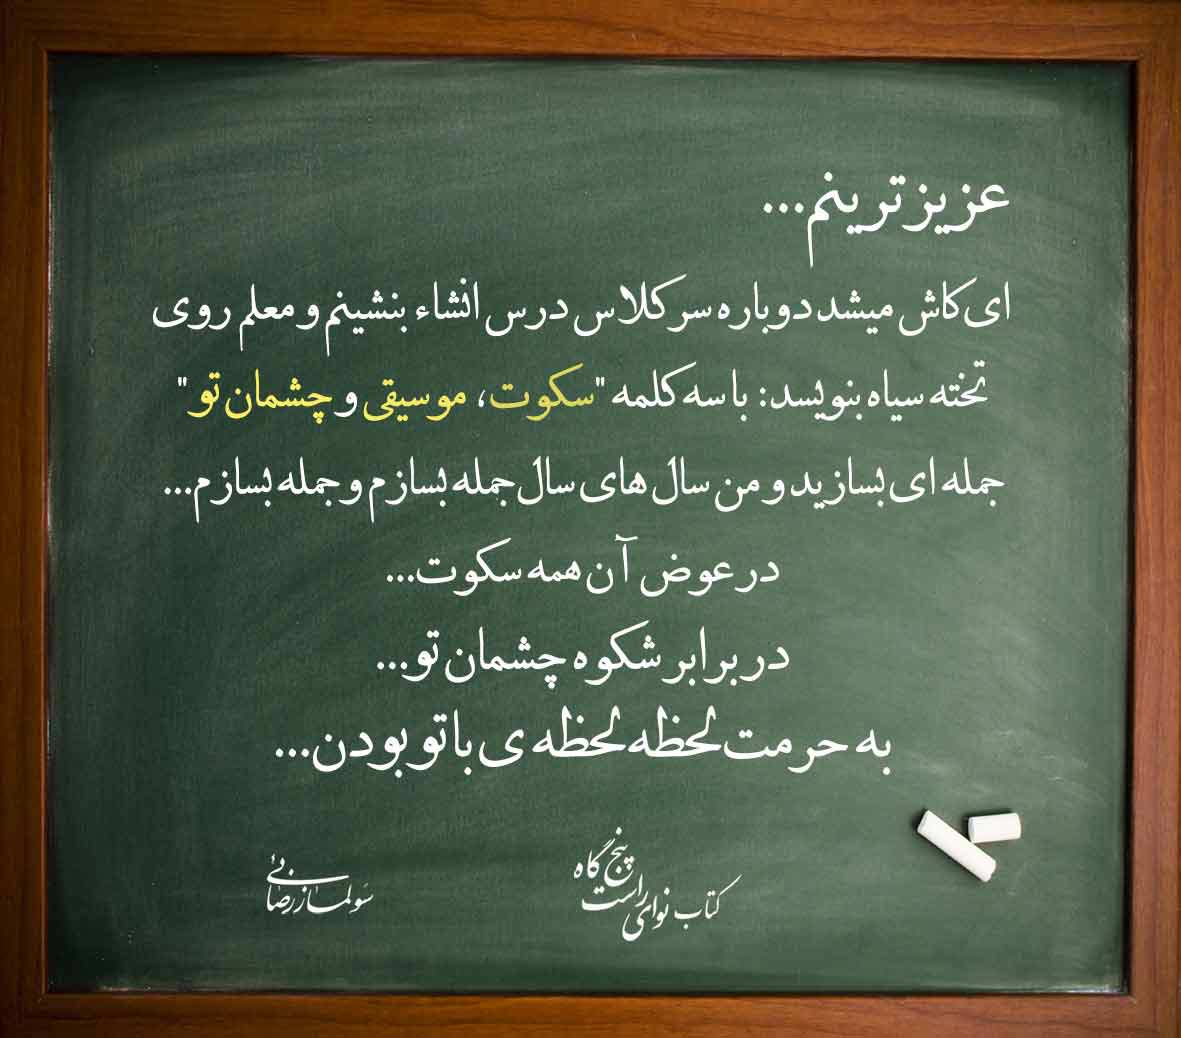 عزیزترینم...
ای کاش میشد دوباره سر کلاس درس انشاء بنشینم و معلم روی
تخته سیاه بنویسد: با سه کلمه "سکوت، موسیقی و چشمان تو"
جمله ای بسازید و من سال های سال جمله بسازم و جمله بسازم...
در عوض آن همه سکوت...
در برابر شکوه چشمان تو...
به حرمت لحظه لحظه ی با تو بودن...
کتاب نوای راست پنج گاه
سولماز رضائی